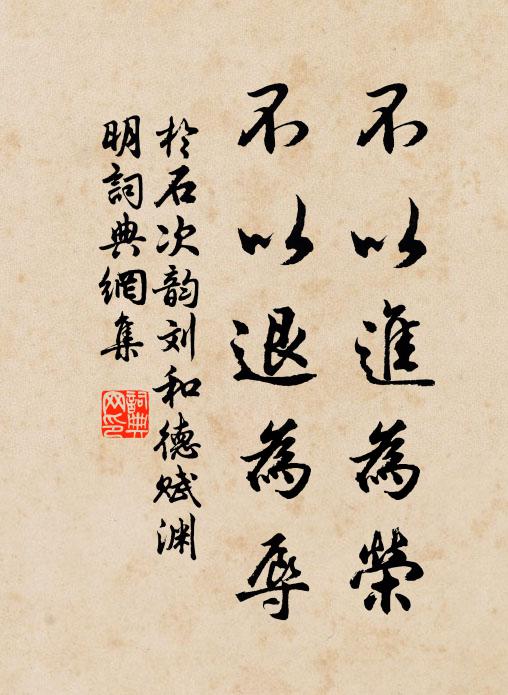 不以進為榮
不以退為辱
於石次韵刘和德赋渊
明詞典網集
詞典
网印